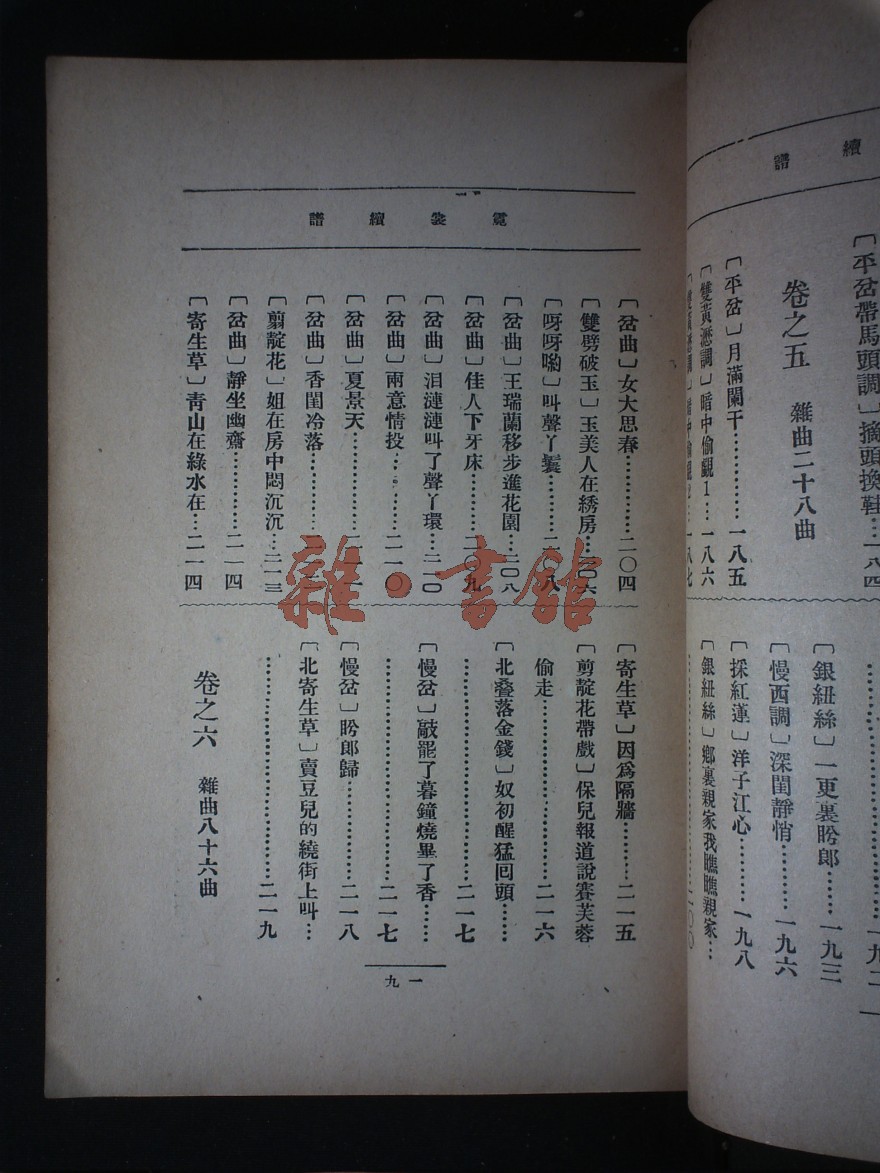 續譜
〔平岔帶馬頭調〕摘頭換鞋…一八四
卷之五　雜曲二十八曲
〔平岔〕月滿闌干………一八五
〔雙黃瀝調〕暗中偷覷1…一八六
一八七
一九二
〔銀紐絲〕一更裏盼郎……一九三
〔慢西調〕深閨靜悄………一九六
〔採紅蓮〕洋子江心………一九八
〔銀紐絲〕鄉裏親家我瞧瞧親家…
二〇〇
霓裳續譜
〔岔曲〕女大思春…………二〇四
〔雙劈破玉〕玉美人在綉房…二〇六
〔呀呀喲〕叫聲丫鬟………二〇八
〔岔曲〕王瑞蘭移步進花園…二〇八
〔岔曲〕佳人下牙床………二〇九
〔岔曲〕泪漣漣叫了聲丫環…二一〇
〔岔曲〕兩意情投…………二一〇
〔岔曲〕夏景天……………
〔岔曲〕香閨冷落…………
〔剪靛花〕姐在房中悶沉沉…二一三
〔岔曲〕靜坐幽齋…………二一四
〔寄生草〕靑山在綠水在…二一四
〔寄生草〕因爲隔牆………二一五
〔剪靛花帶戲〕保兒報道說賽芙蓉
偷走……………………二一六
〔北叠落金錢〕奴初醒猛回頭…
……………………………二一七
〔慢岔〕敲罷了暮鐘燒畢了香……
……………………………二一七
〔慢岔〕盼郎歸……………二一八
〔北寄生草〕賣豆兒的繞街上叫…
……………………………二一九
卷之六　雜曲八十六曲
一九
雜·書館